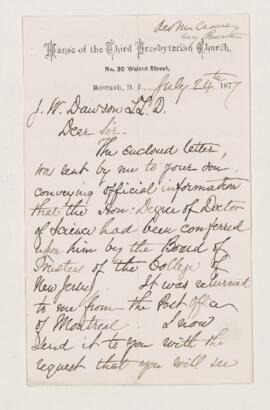 Manse of the Third Presbyterian Church,
No. 30 Walnut Street,
Newark, N. J., July 24th 1877
J. W. Dawson LL.D.
Dear Sir.
The enclosed letter,
was sent by me to your son.
conveying official information
that the Hon: Degree of Doctor
of Science had been conferred
upon him by the Board of
Trustees of the College of
New Jersey. It was returned
to me from the Post Office
of Montreal. I now
send it to you with the
request that you will see